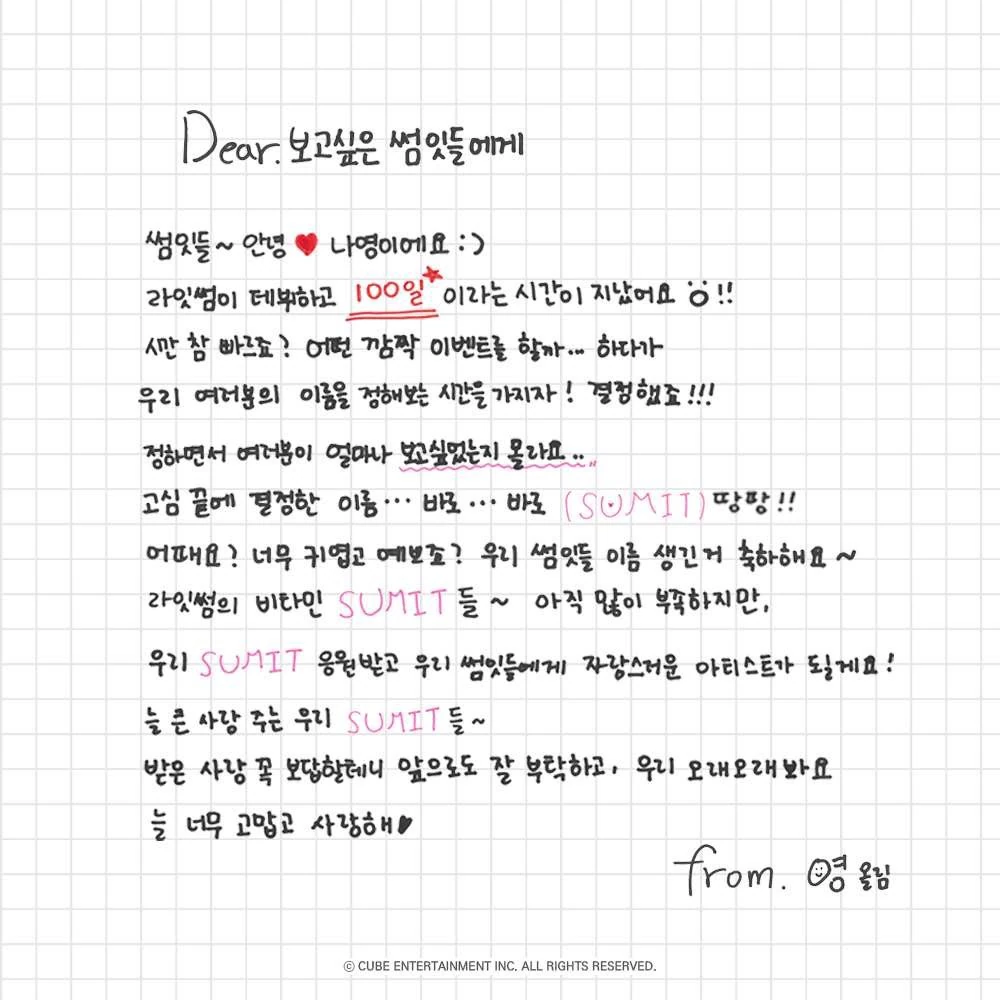 Dear. 보고싶은 썸잇들에게
썸잇들~ 안녕 ♥ 나영이에요 :)
라잇썸이 데뷔하고 100일★ 이라는 시간이 지났어요 !!
시간 참 빠르죠? 어떤 깜짝 이벤트를 할까... 하다가
우리 여러분의 이름을 정해보는 시간을 가지자! 결정했죠!!!
정하면서 여러분이 얼마나 보고싶었는지 몰라요..
고심 끝에 결정한 이름... 바로... 바로 (SUMIT) 땅팡!!
어때요? 너무 귀엽고 예쁘죠? 우리 썸잇들 이름 생긴거 축하해요~
라잇썸의 비타민 SUMIT들~ 아직 많이 부족하지만,
우리 SUMIT 응원받고 우리 썸잇들에게 자랑스러운 아티스트가 될게요!
늘 큰 사랑 주는 우리 SUMIT들~
받은 사랑 꼭 보답할테니 앞으로도 잘 부탁하고, 우리 오래오래봐요
늘 너무 고맙고 사랑해♥
from. 영 올림
ⓒ CUBE ENTERTAINMENT INC. ALL RIGHTS RESERVED.